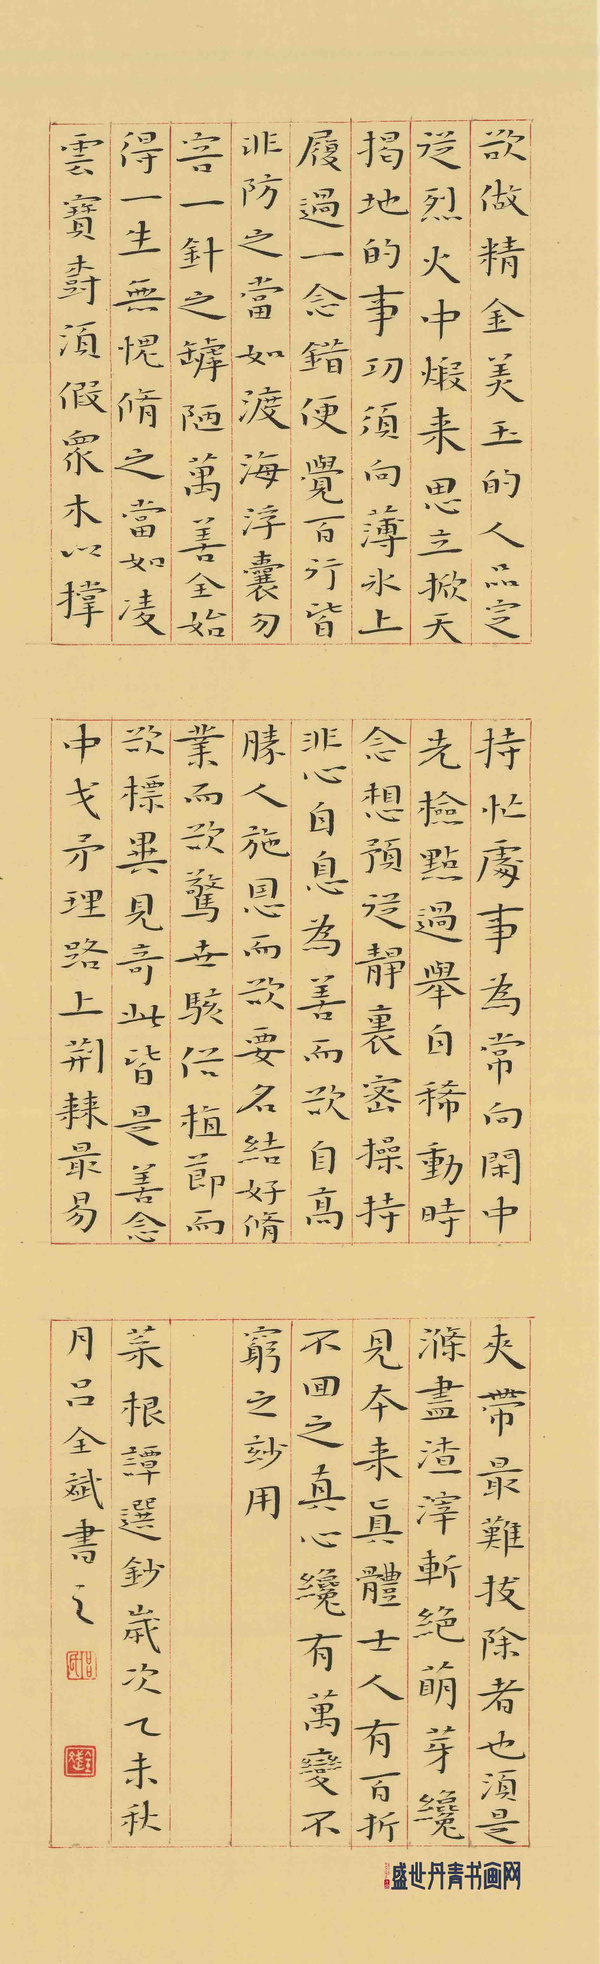 欲做精金美玉的人品定
從烈火中煅来思立掀天
揭地的事功須向薄氷上
履過一念錯便覺百行皆
非防之當如渡海浮囊勿
容一針之罅陋萬善全始
得一生無愧脩之當如凌
雲寶樹須假眾木以撑
持忙處事為常向閑中
先檢點過舉自稀動時
念想預從靜裏密操持
非心自息為善而欲自高
勝人施恩而欲要名結好脩
業而欲驚世駭俗植節而
欲標異見奇此皆是善念
中戈矛理路上荆棘最易
夾帶最難拔除者也須是
滌盡渣滓斬絕萌芽纔
見本来真體士人有百折
不囬之真心纔有萬變不
窮之妙用
菜根譚選鈔歲次乙未秋
月吕全斌書之
盛世丹青书画网